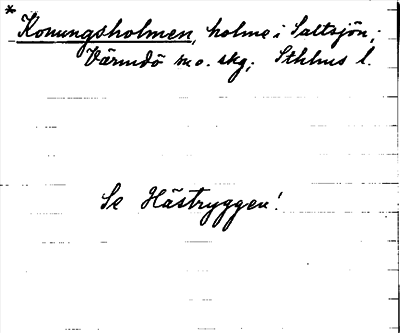 * Konungsholmen, holme i Saltsjön;
Värmdö sn o. skg; Sthlms l.
Se Hästryggen!